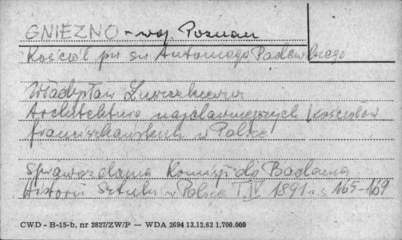 GNIEZNO - woj Poznań
Kościół pw św Antoniego Padewskiego
Władysław Łuszczkiewicz
Architektura najdawniejszych kościołów
franciszkańskich w Polsce
Sprawozdania Komisji do Badania
Historii Sztuki w Polsce T. IV 1891 s 165-169
CWD - B-15-b, nr 2827/ZW/P — WDA 2694 13.12.62 1.700.000